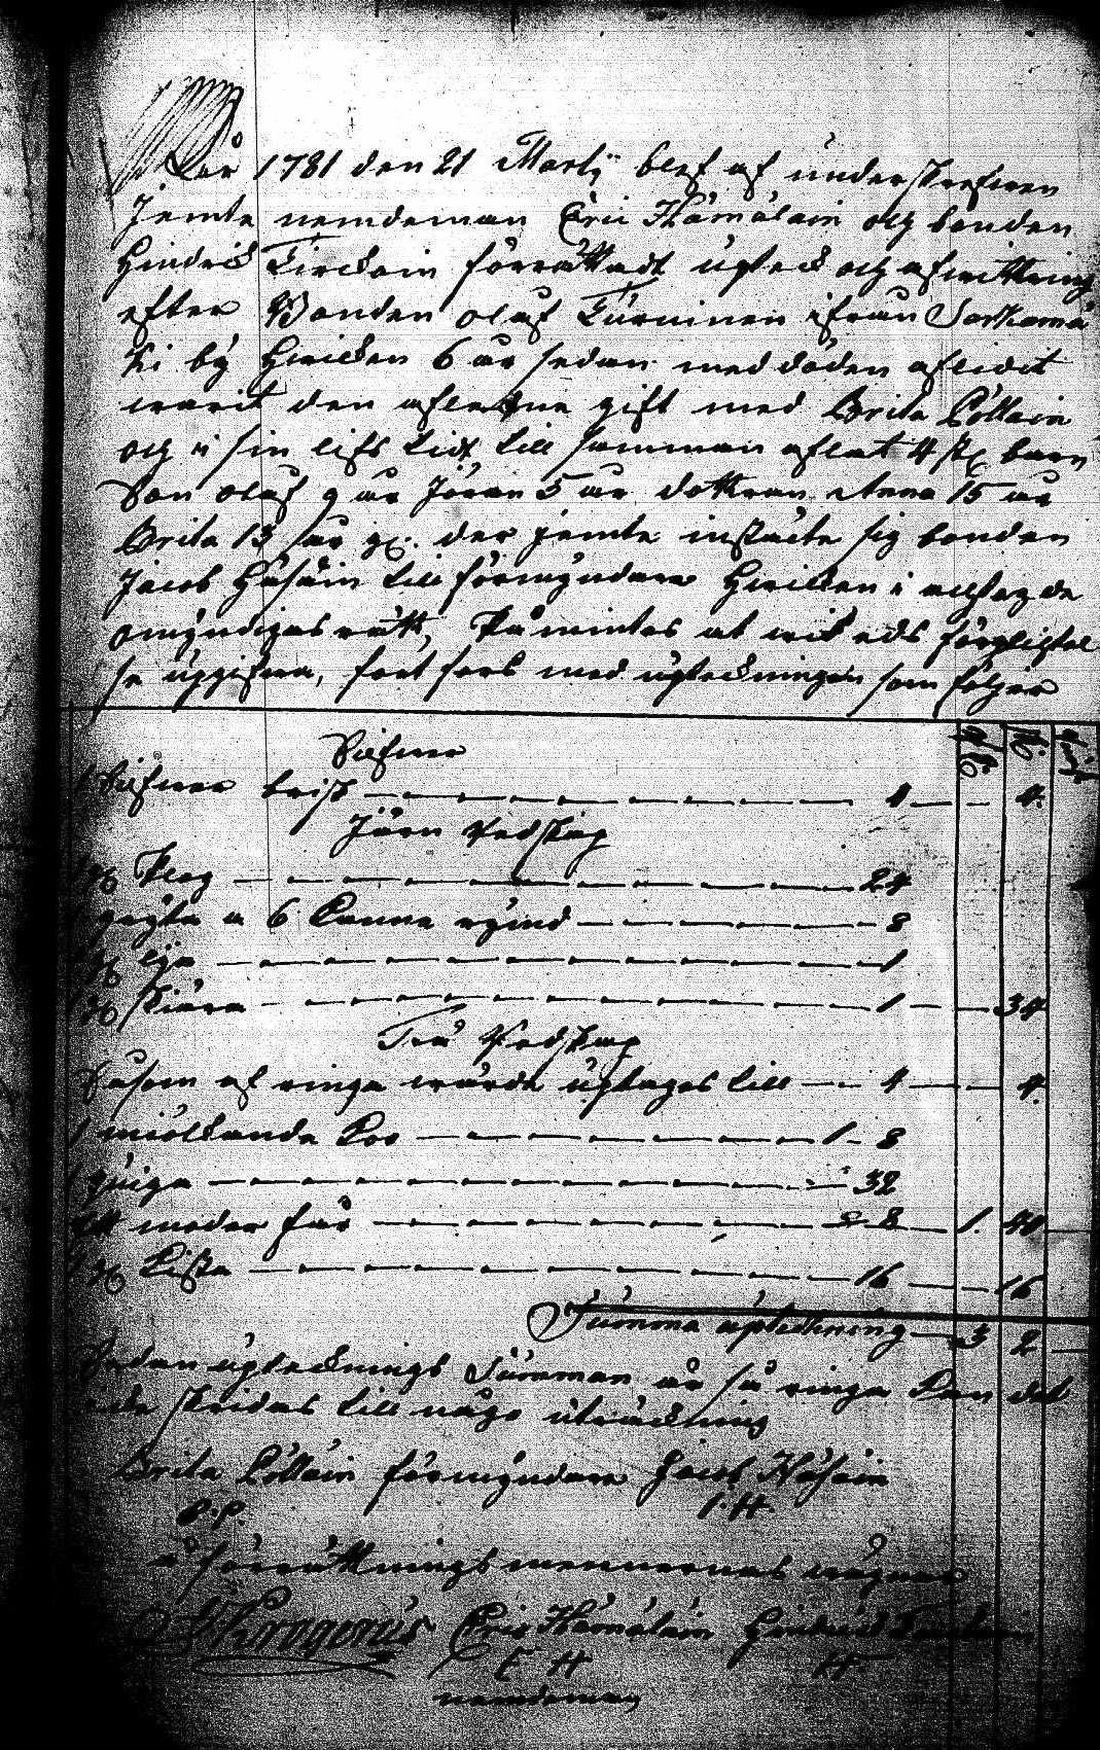 År 1781 den 21 Martij blef af underskrefwen
Jemte nemdeman Eric Hämäläin och bonden
Hindrick Tirckoin förrättadt upteck och afwittring
efter Bonden Olaf Turuinen ifrån Sarkamä
ki bÿ hwilcken 6 år sedan med döden aflidit
warit den afledne gift med Brita Pöllain
och i sin lifs tidt till samman aflat 4 st barn
Son Olaf 9 år Jöran 5 år dottran Anna 15 år
Brita 13 år der jemte instälte sig bonden
Jacob Häsäin till förmyndare hwilcken i
omyndigas rätt, Påmintes at wid eds förplichtel
se uppgifwa, fort fors med upteckningen som följer
Silfwer
1 Silfwer brist 4 4.
Järn Redskap
1 st Plog 24
1 grÿta a 6 Kanna rÿmd 8
1 st ÿxa 1
1 st skiära 1 34
Trä Redskap
Såsom af ringa wärde uptages till 4 4.
1 miölckande Koo 1 8
1 quiga 32
ett moder får 8 1. 48
1 st Kista 16 16
Summa upteckning 3 2
Sedan uptecknings Summan är så ringa Kan det
icke skridas till någo uträckning
Brita Pöllain förmyndare Jacob Häsäin
B:P. I:H.
å förrättningsmennernas wägnar
Eric Hämäläin Hindrick
E H H
nemdeman